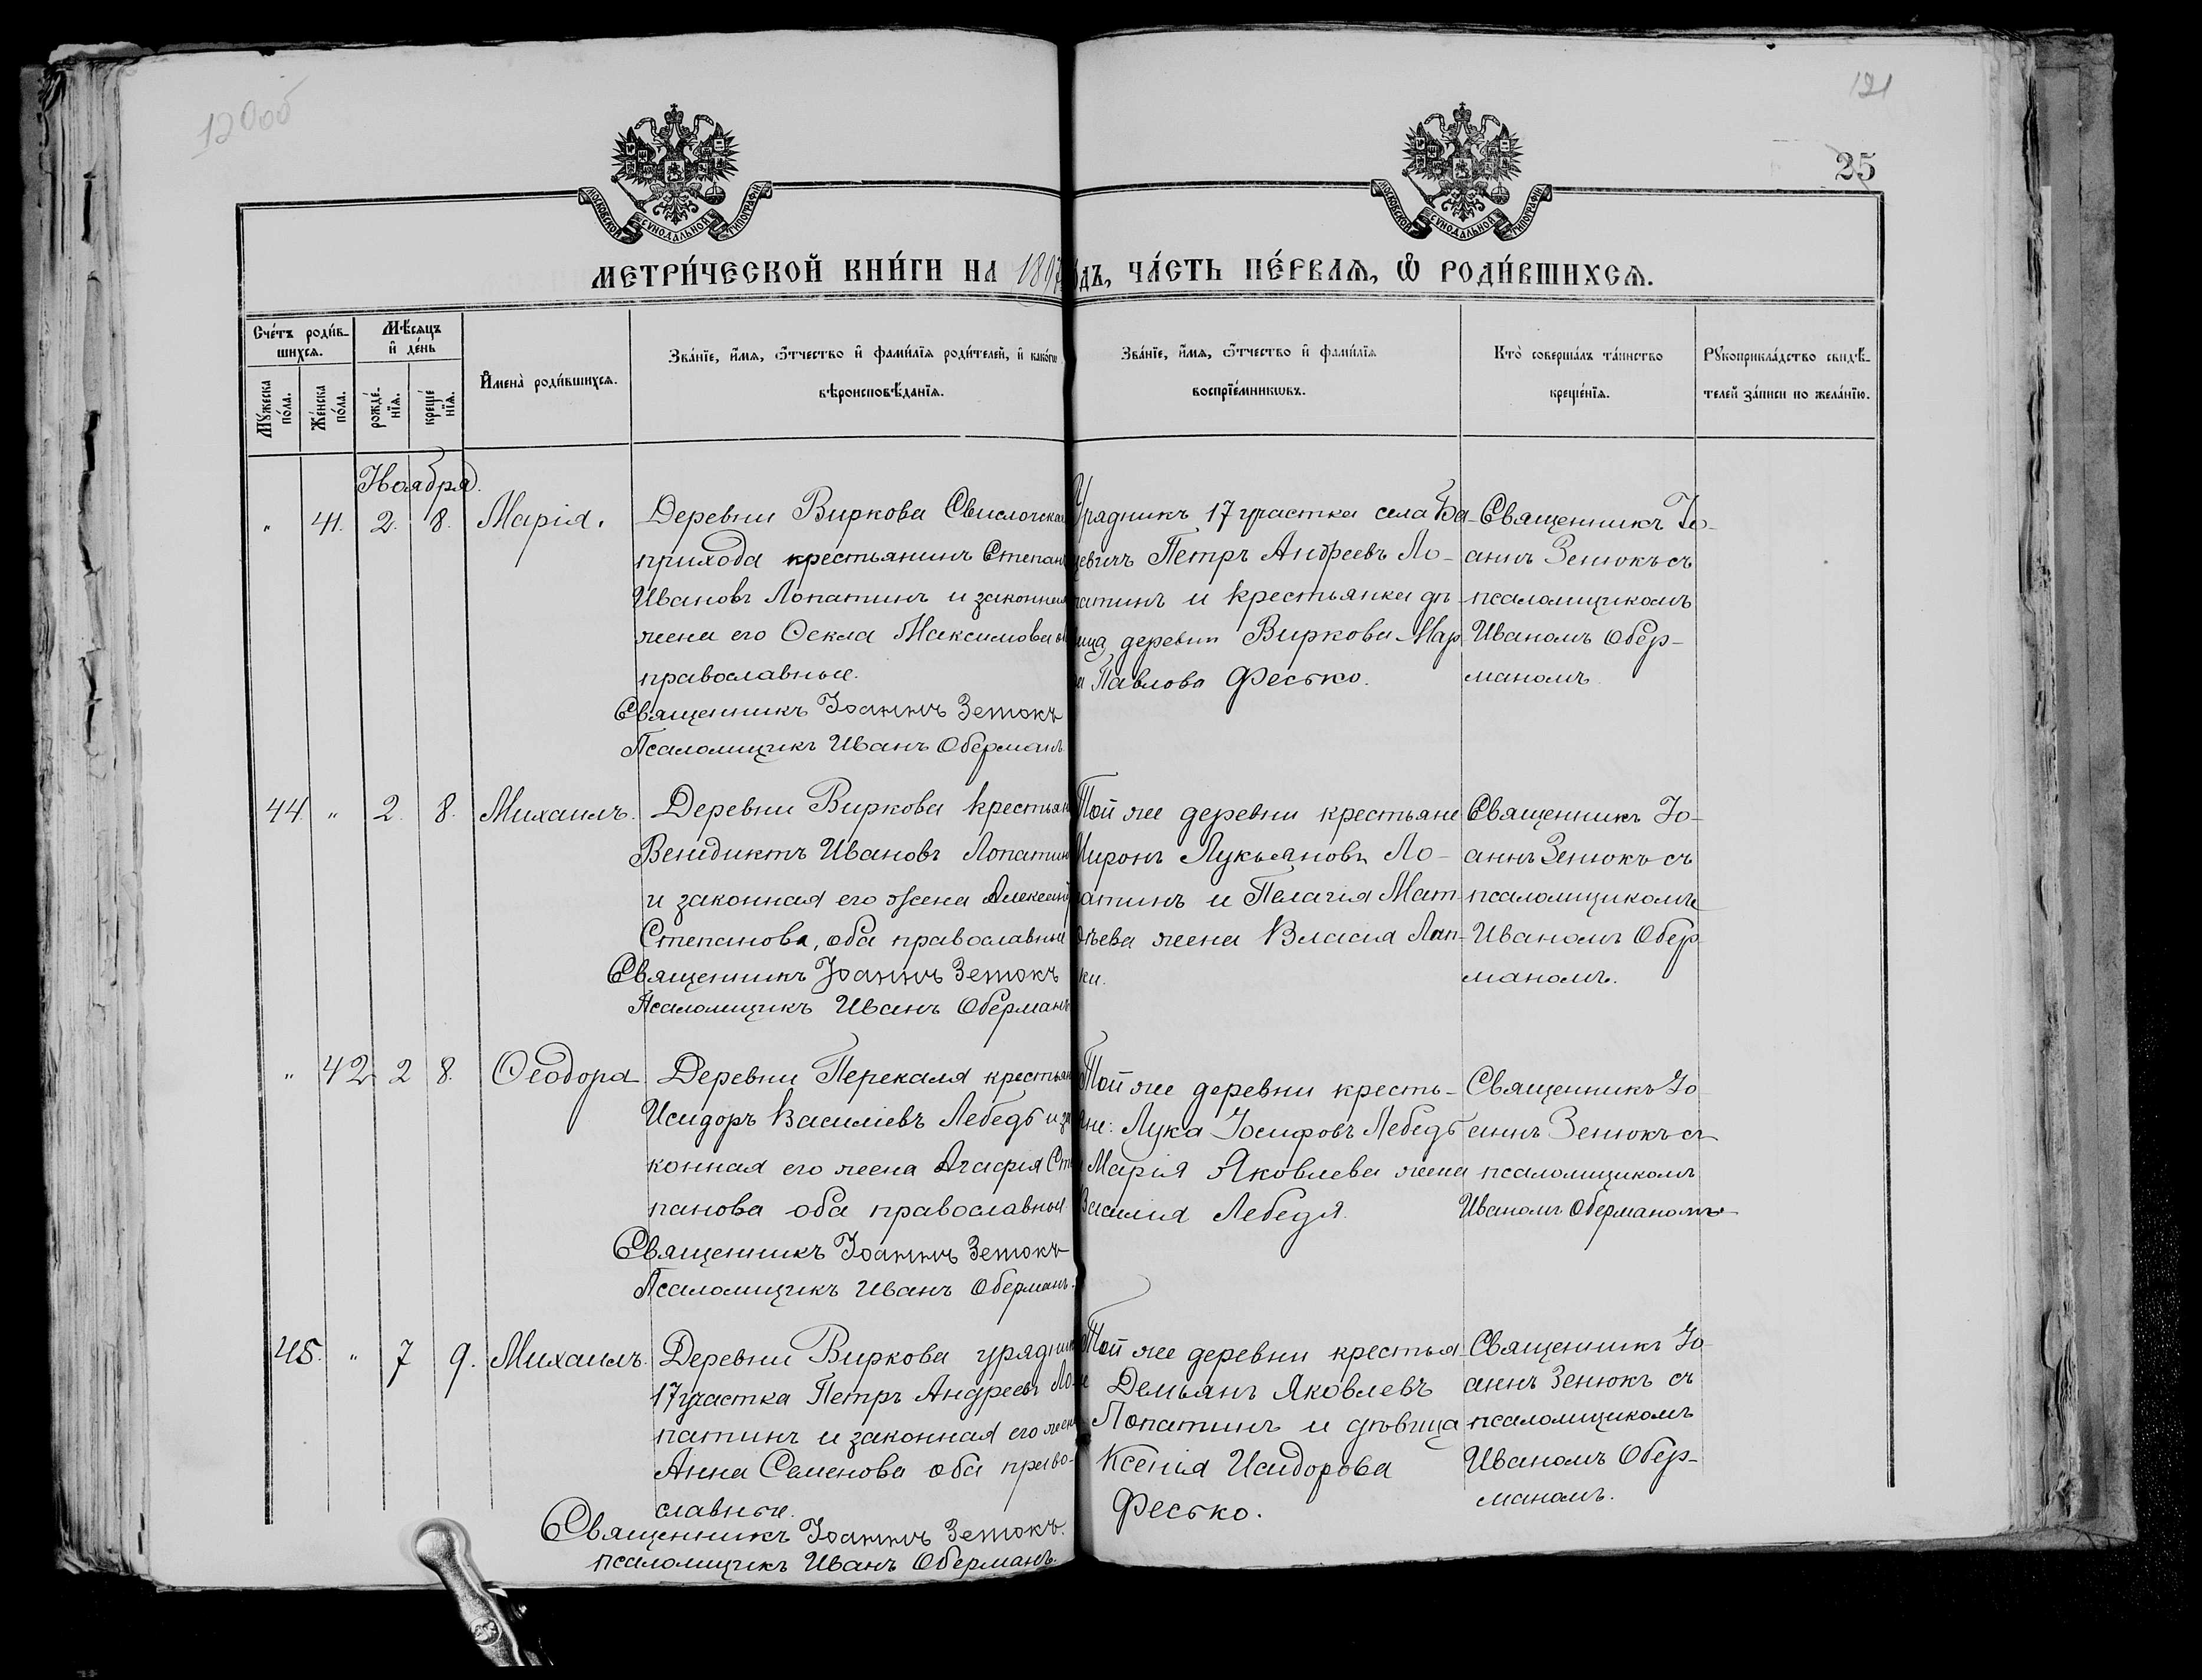 120об
121
25
МОСКОВСКОЙ СѴНОДАЛЬНОЙ ТИПОГРАФІИ
МОСКОВСКОЙ СѴНОДАЛЬНОЙ ТИПОГРАФІИ
МЕТРИ́ЧЕСКОЙ КНИ́ГИ НА 1897 ОДЪ, ЧА́СТЬ ПЕ́РВАѦ, Ѡ РОДИ́ВШИХСѦ.
Сче́тъ роди́в-
шихсѧ.
Мѣ́сѧцъ
и҆ де́нь
Мꙋ́жеска
по́ла.
Же́нска
по́ла.
рожде́-
нїѧ.
креще́
нїѧ.
И҆мена̀ роди́вшихсѧ.
Зва́нїе, и҆́мѧ, ѻ҆́тчество и҆ фами́лїѧ роди́телей, и҆ како́гѡ
вѣроисповѣ́данїѧ.
Зва́нїе, и҆́мѧ, ѻ҆́тчество и҆ фами́лїѧ
воспрїе́мникѡвъ.
Кто̀ соверша́лъ та́инство
креще́нїѧ.
Рꙋкоприкла́дство свидѣ́-
телей за́писи по жела́нїю.
Ноября.
" 41. 2. 8. Марія.
Деревни Виркова Свислочска
прихода крестьянинъ Степан
Ивановъ Лопатинъ и законная
жена его Ѳекла Максимова об
православные.
Священникъ Іоаннъ Зенюкъ
Псаломщикъ Иванъ Оберманъ
Урядникъ 17 участка села Ба-
цевичъ Петръ Андреевъ Ло-
патинъ и крестьянка дѣ-
вица деревни Виркова Мар
а Павлова Фесько.
Священникъ Іо-
аннъ Зенюкъ съ
псаломщикомъ
Иваномъ Обер-
маномъ
44 " 2. 8. Михаилъ.
Деревни Виркова крестьян
Венидиктъ Ивановъ Лопатин
и законная его жена Александ
Степанова, оба православные
Священникъ Іоаннъ Зенюкъ
Псаломщикъ Иванъ Оберманъ
Той же деревни крестьяне
Миронъ Лукьяновъ Ло-
патинъ и Пелагія Мат-
ѳѣева жена Власія Лап-
ки.
Священникъ Іо-
аннъ Зенюкъ съ
псаломщикомъ
Иваномъ Обер
маномъ.
" 42 2 8. Ѳеодора
Деревни Перекаля крестьян
Исидоръ Василіевъ Лебедь и за
конная его жена Агафія Сте
панова оба православные
Священникъ Іоаннъ Зенюкъ
Псаломщикъ Иванъ Оберманъ.
Той же деревни кресть-
яне: Лука Іосифовъ Лебедь
и Марія Яковлева жена
Василія Лебедя.
Священникъ Іо
аннъ Зенюкъ съ
псаломщикомъ
Иваномъ Оберманомъ
45. " 7 9. Михаилъ.
Деревни Виркова урядник
17 участка Петръ Андреевъ Ло-
патинъ и законная его жена
Анна Семенова оба право-
славные.
Священникъ Іоаннъ Зенюкъ.
псаломщикъ Иванъ Оберманъ.
Той же деревни крестья-
не Демьянъ Яковлевъ
Лопатинъ и дѣвица
Ксенія Исидорова
Фесько.
Священникъ Іо
аннъ Зенюкъ съ
псаломщикомъ
Иваномъ Обер-
маномъ.